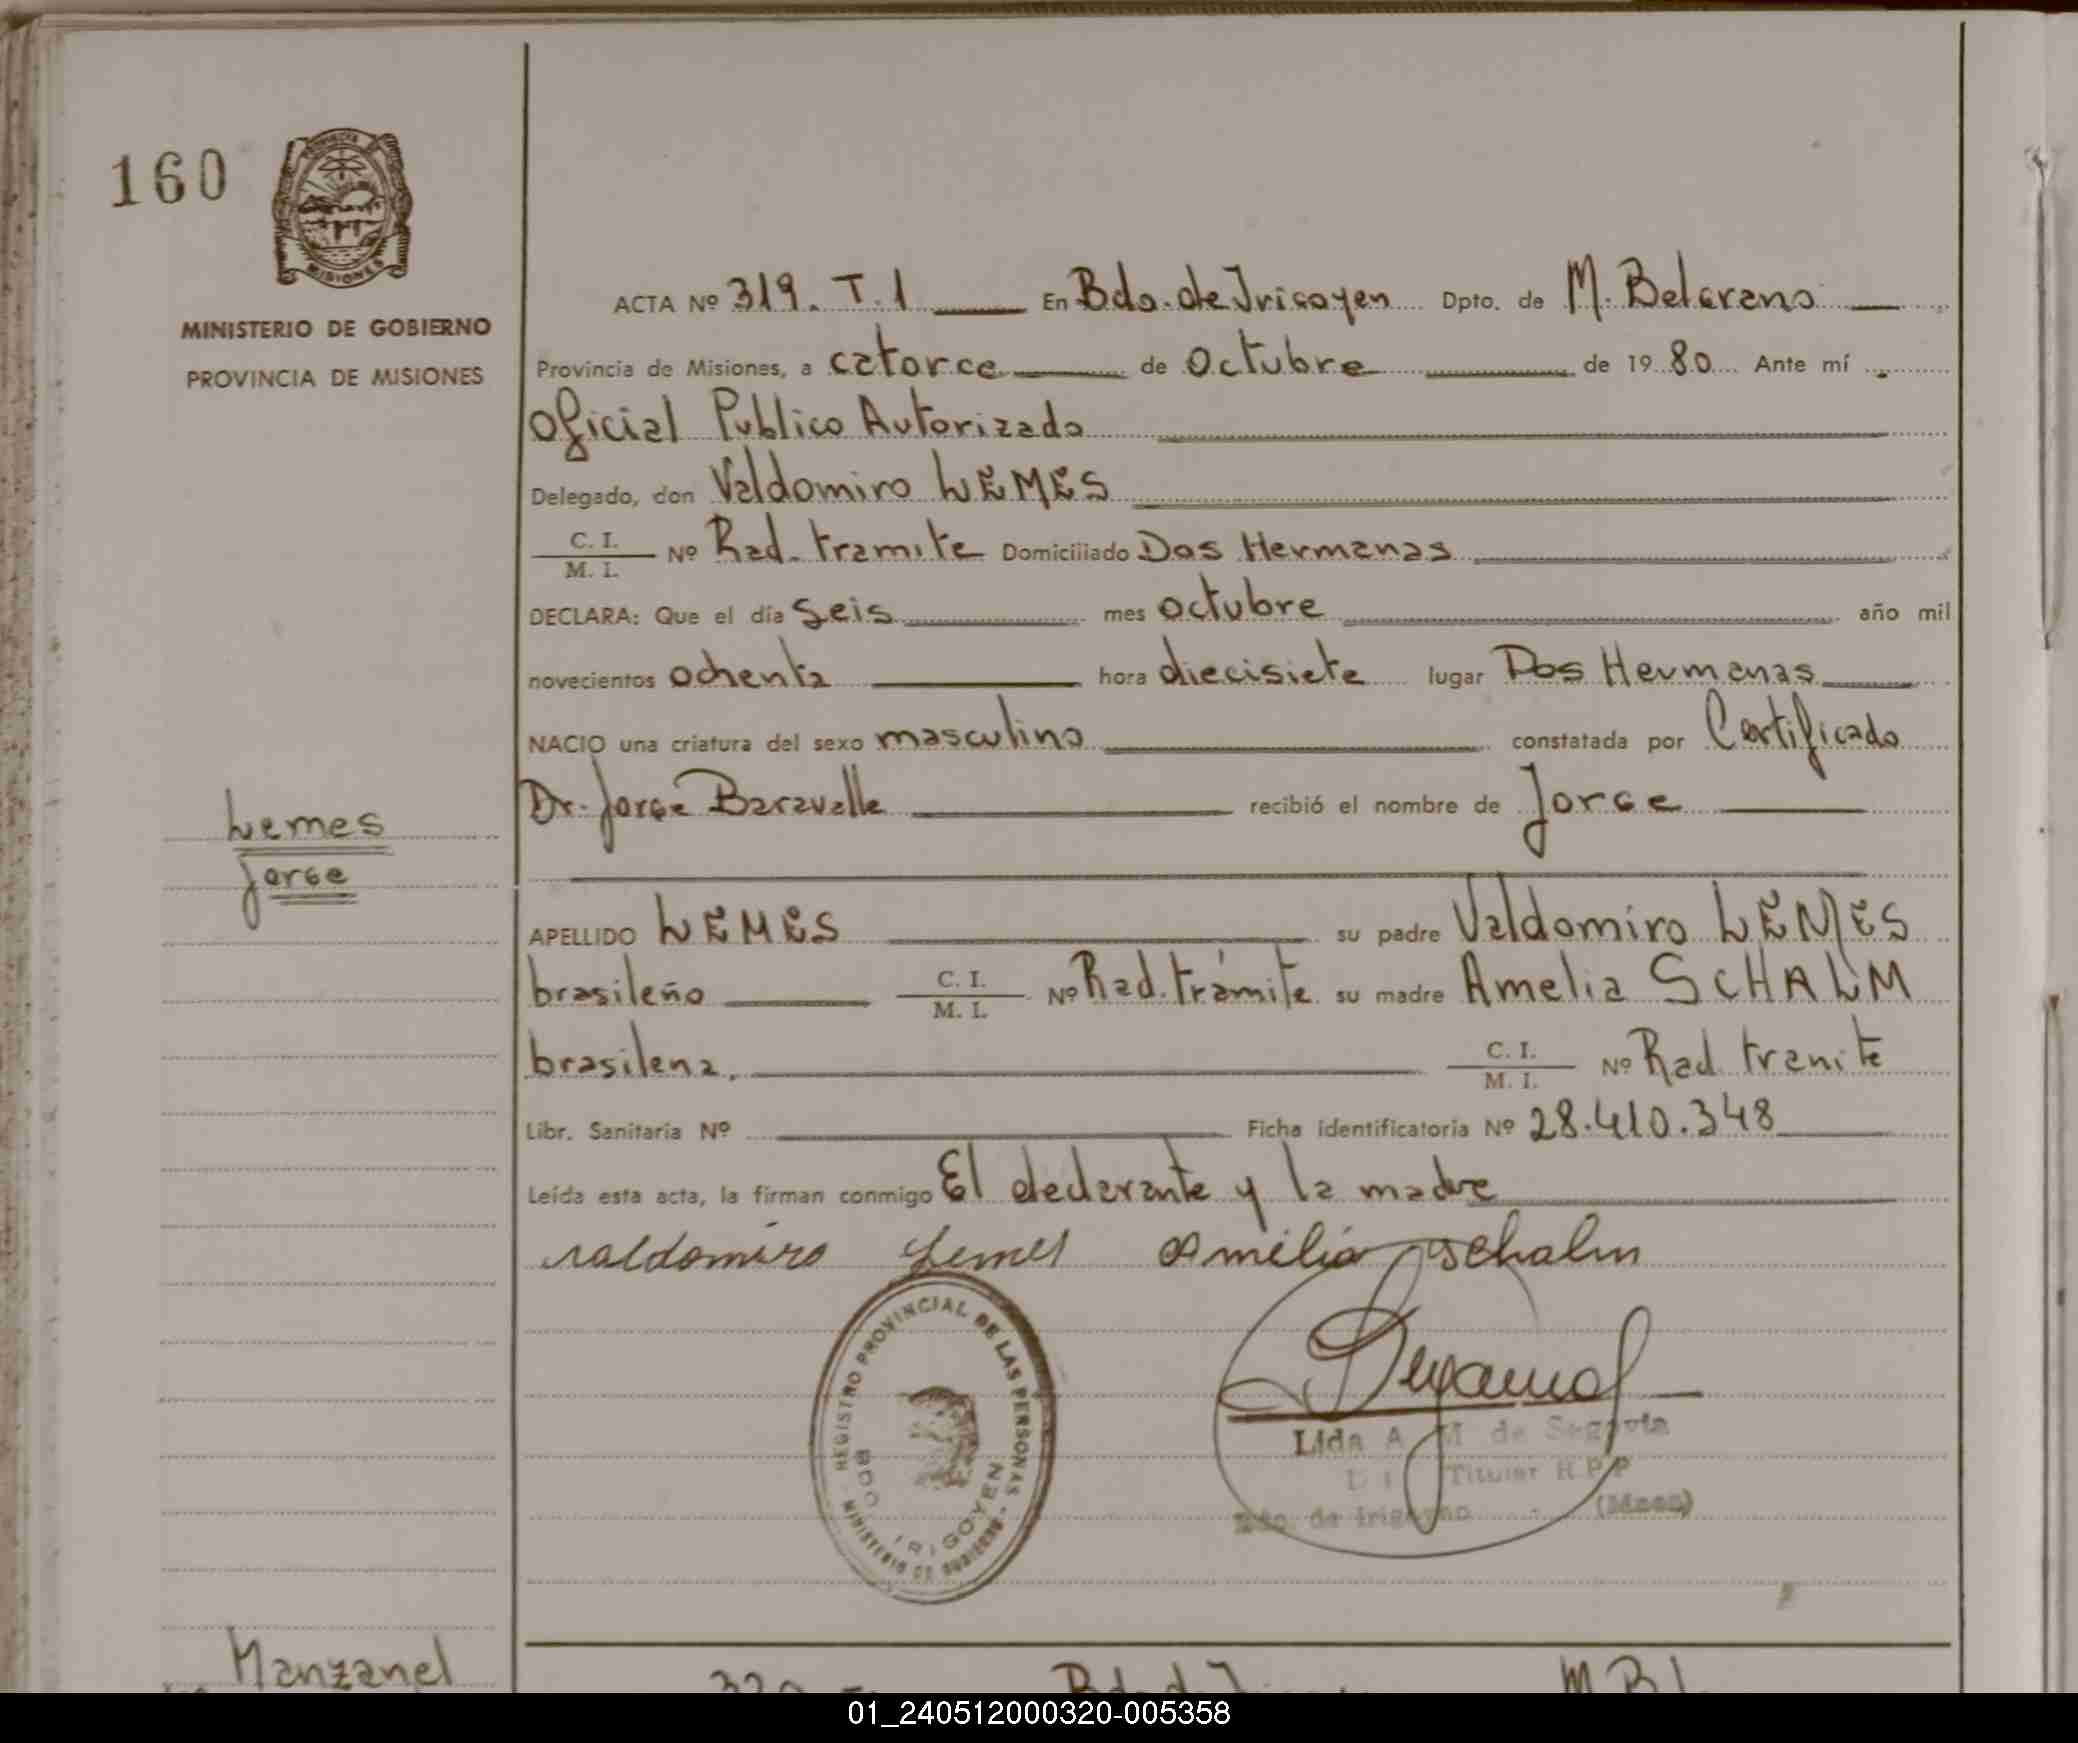 160
PROVINCIA
MISIONES
MINISTERIO DE GOBIERNO
PROVINCIA DE MISIONES
ACTA Nº 319. T. 1 En Bdo. de Irigoyen Dpto. de M. Belgrano
Provincia de Misiones, a catorce de Octubre de 19 80 Ante mí
Oficial Publico Autorizado
Delegado, don Valdomiro LEMES
C. I.
M. I. Nº Rad. tramite Domiciliado Dos Hermanas
DECLARA: Que el día Seis mes octubre año mil
novecientos ochenta hora diecisiete lugar Dos Hermanas
NACIO una criatura del sexo masculino constatada por Certificado
Dr. Jorge Baravalle recibió el nombre de Jorge
Lemes
Jorge
APELLIDO LEMES su padre Valdomiro LEMES
brasileño C. I.
M. I. Nº Rad. trámite su madre Amelia SCHALM
brasilena. C. I.
M. I. Nº Rad. tramite
Libr. Sanitaria Nº Ficha identificatoria Nº 28.410.348
Leída esta acta, la firman conmigo El declarante y la madre
valdomiro Lemes Amélia Schalm
REGISTRO PROVINCIAL DE LAS PERSONAS
MINISTERIO DE GOBIERNO
BDO IRIGOYEN
Lida A M de Segovia
Titular R.P.P
Bdo. de Irigoyen (Mnes)
Manzanel
320
01_240512000320-005358